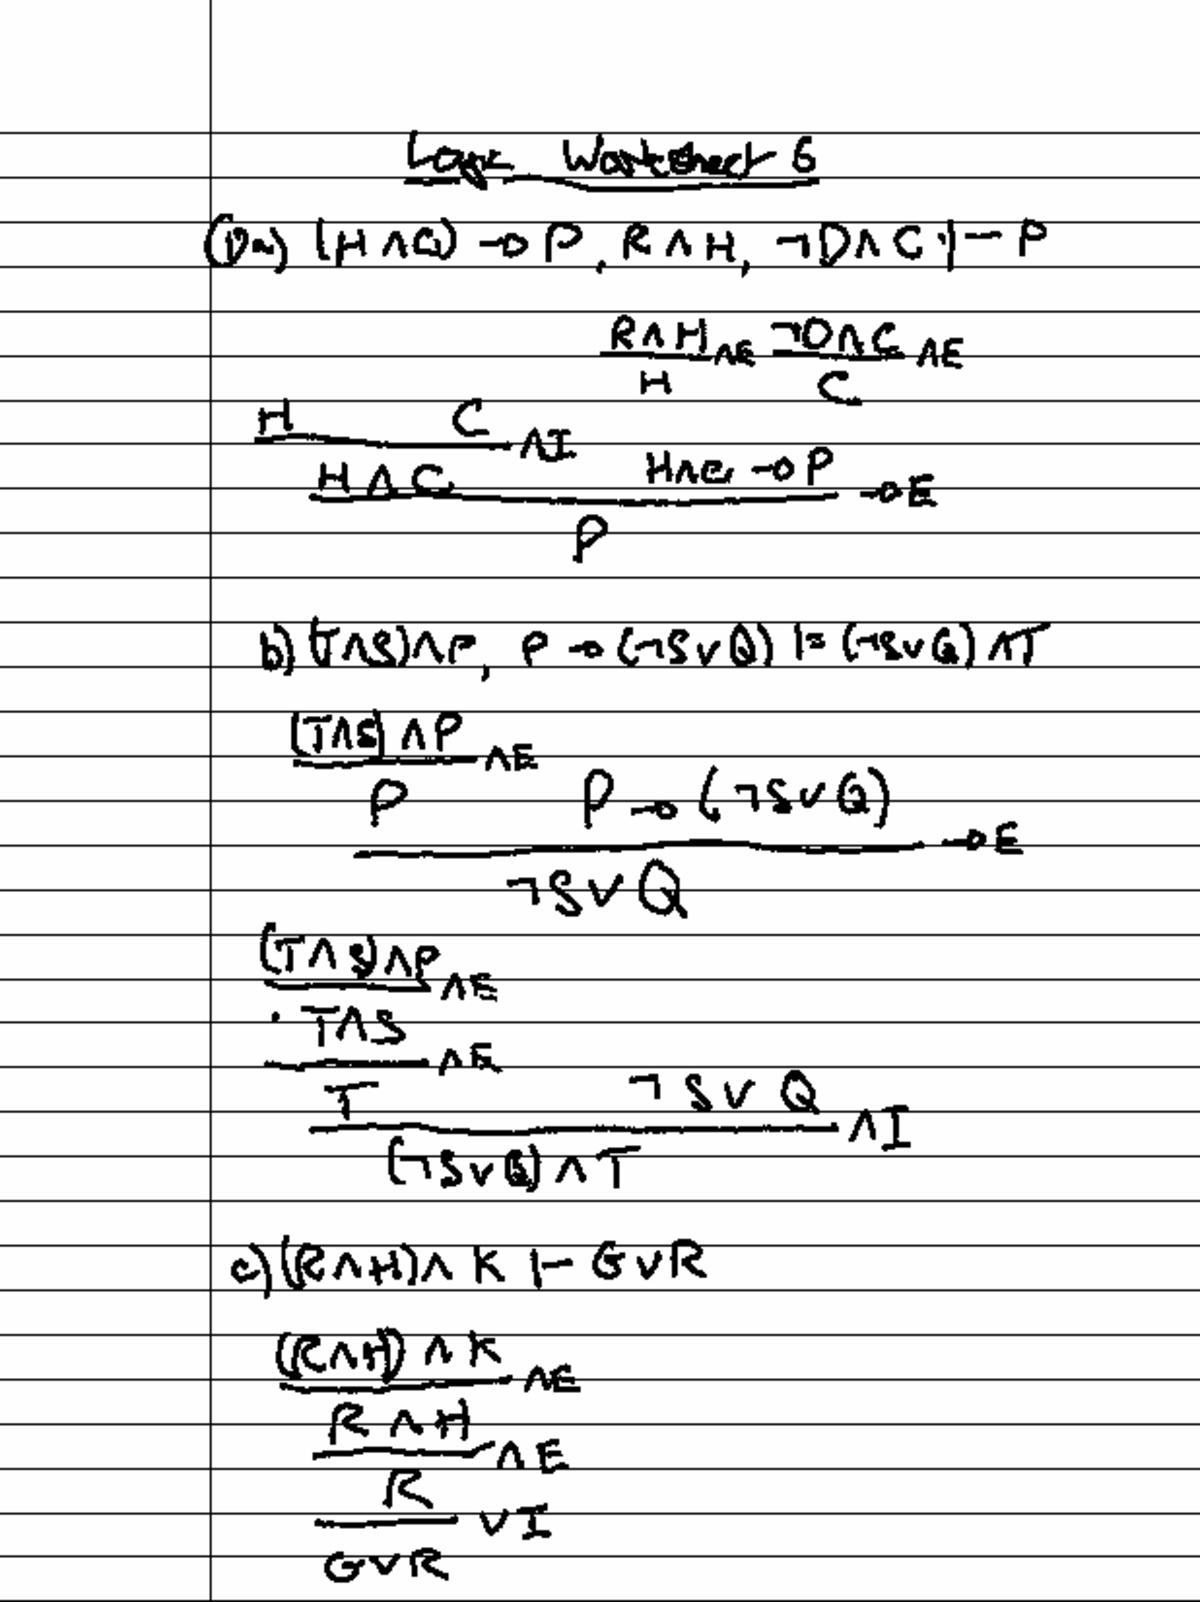 Logic Worksheet 6
(1)a) (H ∧ C) → P, R ∧ H, ¬D ∧ C ⊢ P
R ∧ H ∧E ¬D ∧ C ∧E
H C
H C ∧I
H ∧ C H ∧ C → P →E
P
b) (T ∧ S) ∧ P, P → (¬S ∨ Q) ⊨ (¬S ∨ Q) ∧ T
(T ∧ S) ∧ P ∧E
P P → (¬S ∨ Q)
→E
¬S ∨ Q
(T ∧ S) ∧ P ∧E
T ∧ S
∧E
T ¬S ∨ Q
∧I
(¬S ∨ Q) ∧ T
c) (R ∧ H) ∧ K ⊢ G ∨ R
(R ∧ H) ∧ K ∧E
R ∧ H
∧E
R
∨I
G ∨ R